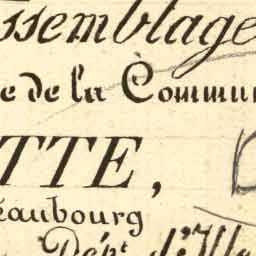 ssemblage
e de la Commu
TTE,
eaubourg
Dépt d'Ille